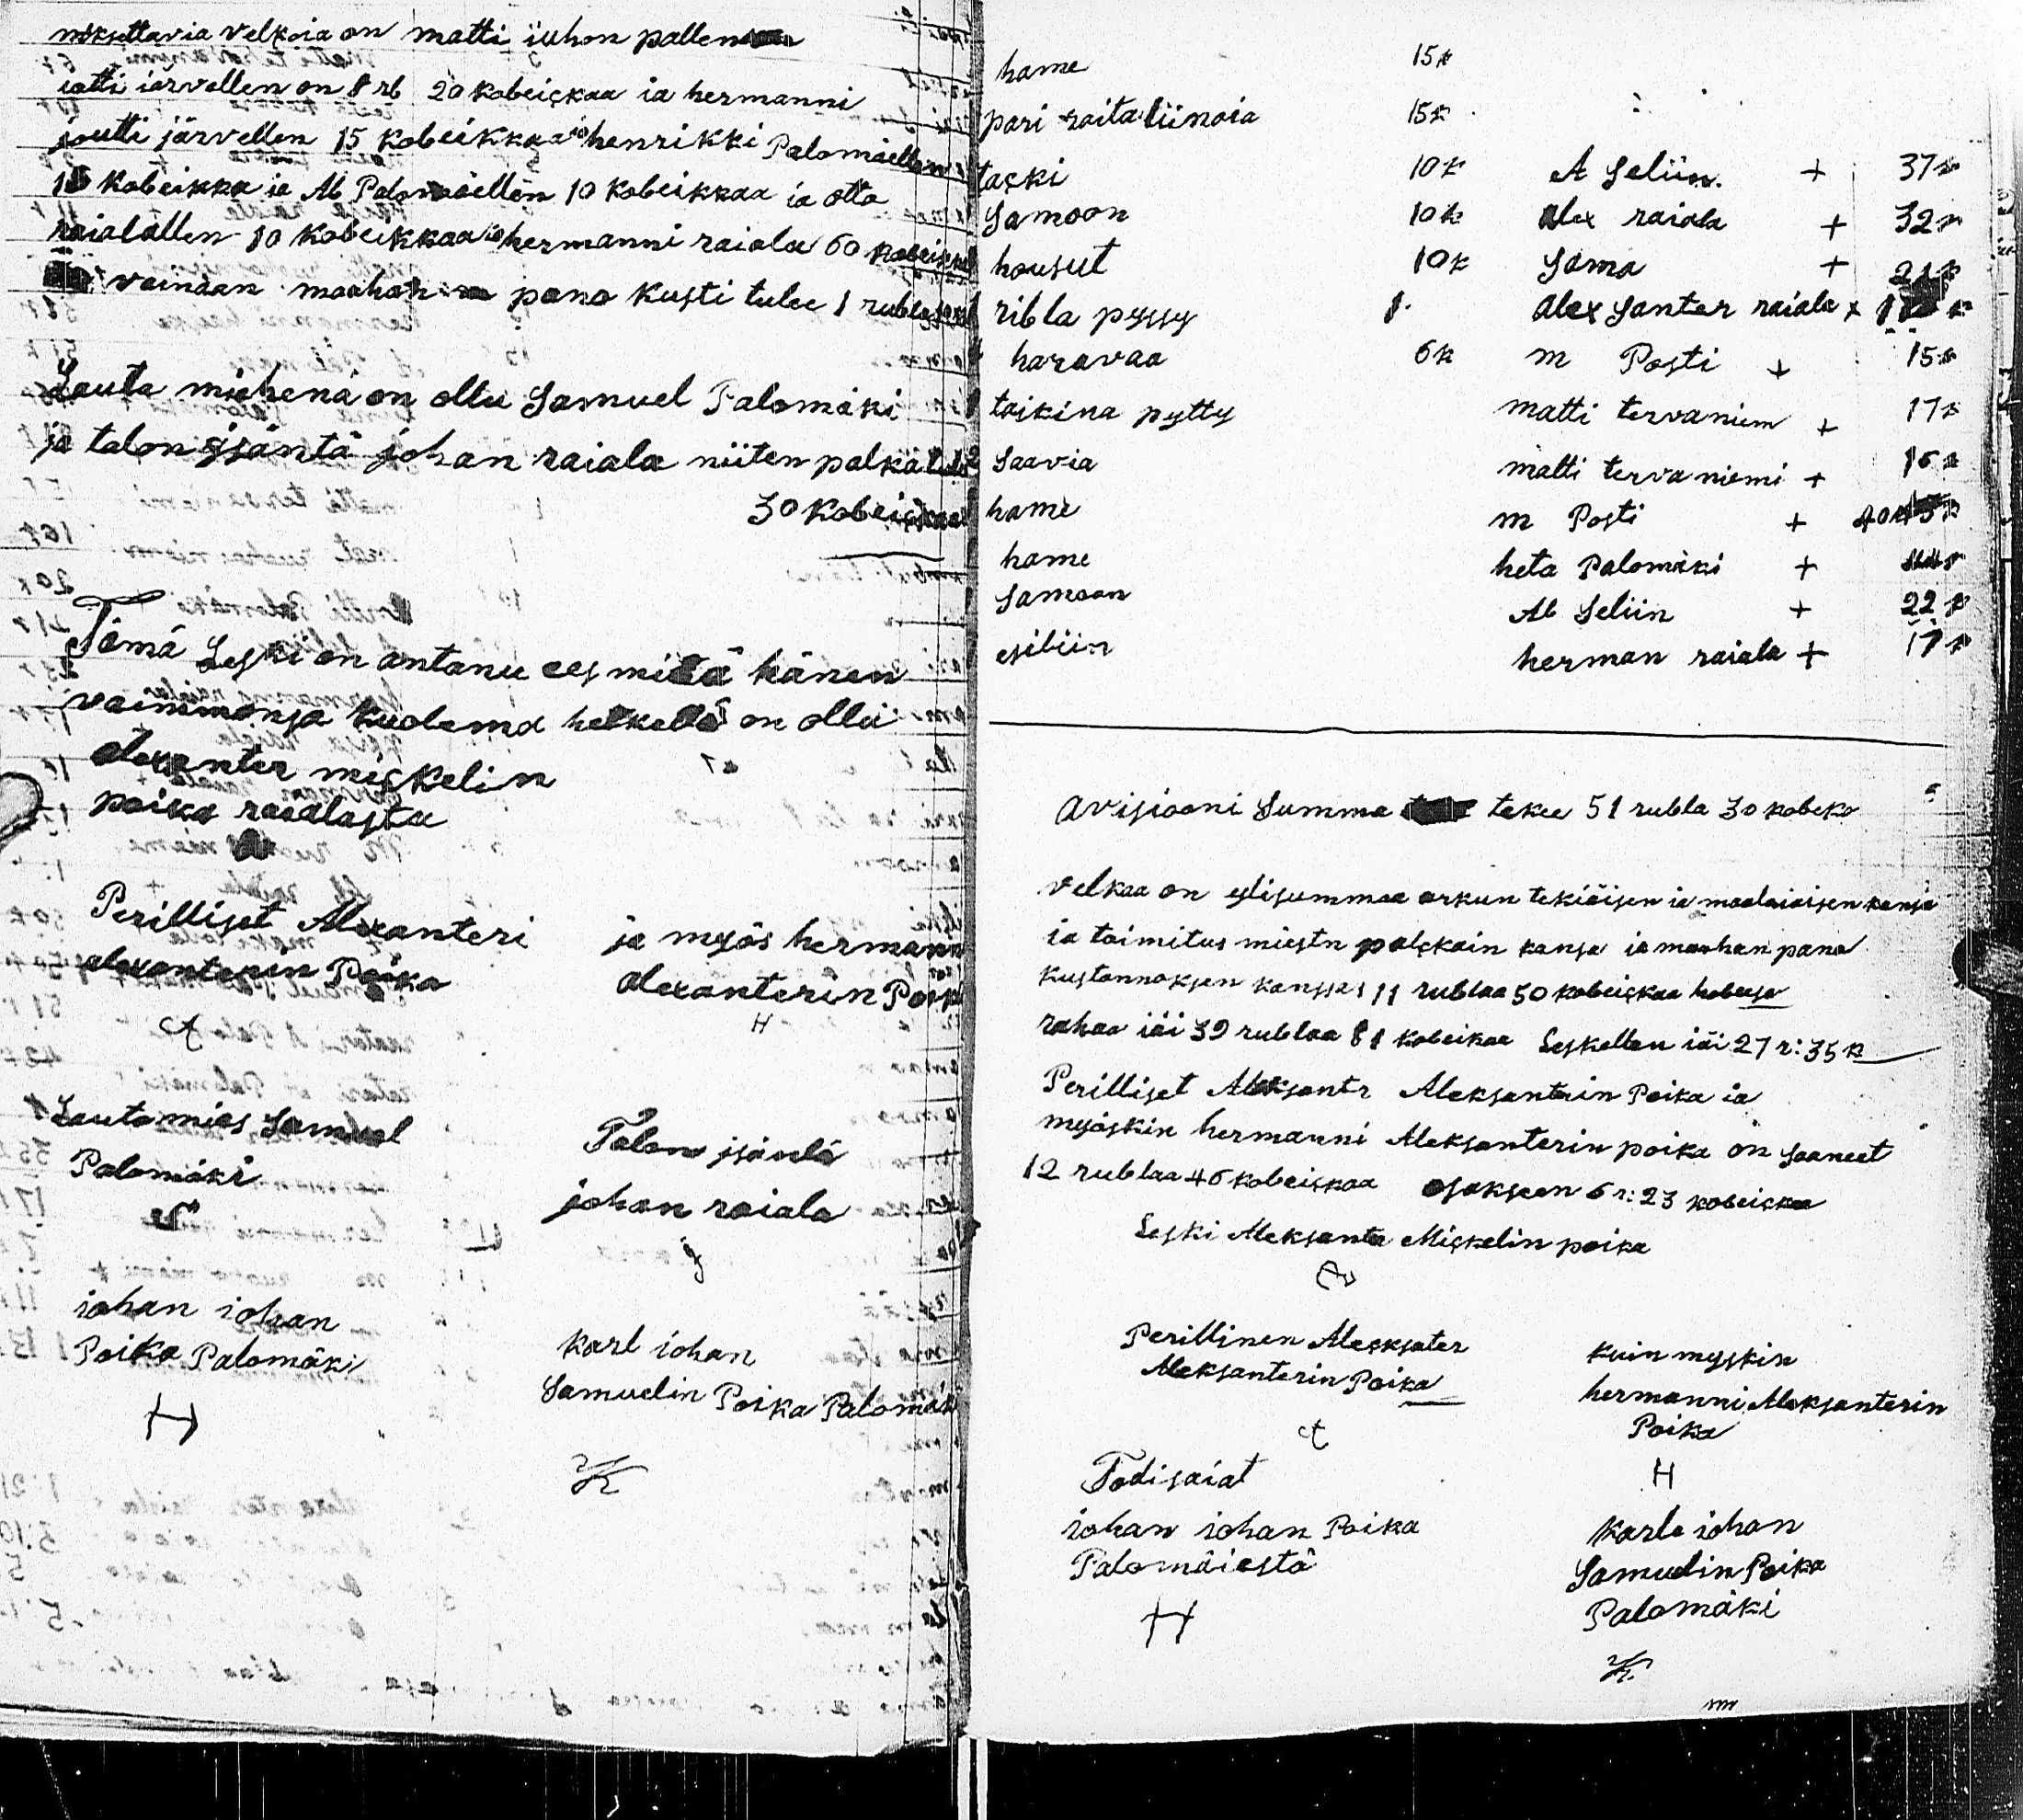 matti iuhon pallen
iärvellen on 8 rb 20 kobeickaa ia hermanni
joutti järvellen 15 kobeikkaa ia henrikki Palomäellen
kobeikka ia Ab Palomäellen 10 kobeikkaa ia otto
raialallen 10 kobeikkaa ia hermanni raiala 60
vainaan maahan pano kusti tulee 1 rubla
Lauta miehenä on ollu Samuel Palomäki
ja talon isäntä johan raiala niiten palka
30 kobeickaa
Tämä Leski on antanu ees mitä hänen
vaimmonsa kuolema hetkellä on ollu
alexanter mickelin
poika raialasta
Perilliset Alexanteri
alexanterin Poika
A
ja myös hermann
alexanterin Poik
H
Lautamies Samuel
Palomäki
Talon isäntä
johan raiala
j
iohan iohan
Poika Palomäki
H
Karl iohan
Samuelin Poika Palomäk
K
hame 15k
pari raita liinoia 15k
taski 10k A Seliin. + 37k
Samoon 10k alex raiala + 32k
housut 10k Sama + 21k
ribla pyssy 1. alex santer raiala x
haravaa 6k m Posti + 15k
taikina pytty matti tervaniem + 17k
2 Saavia matti terva niemi + 16k
hame m Posti + 40k
hame heta Palomäki +
Samoon Ab Seliin + 22k
esiliin herman raiala + 17k
avisiooni Summa tekee 51 rubla 30 kobeko
velkaa on ylisummaa arkun tekiäisen ia maalaiaisen kansa
ia toimitus miestn palckain kansa ia maahan pano
kustannoksen kanssa 11 rublaa 50 kobeickaa
rahaa iäi 39 rublaa 81 kobeikaa Leskellen iäi 27 r: 35 k
Perilliset Aleksantr Aleksanterin Poika ia
myöskin hermanni Aleksanterin poika on saaneet
12 rublaa 46 kobeickaa osakseen 6 r: 23 kobeicka
Leski Aleksanta Mickelin poika
A
Perillinen Alecksater
Aleksanterin Poika
A
kuin myskin
hermanni Aleksanterin
Poika
H
Todisaiat
iohan iohan Poika
Palomäiestä
H
Karle iohan
Samuelin Poika
Palomäki
K